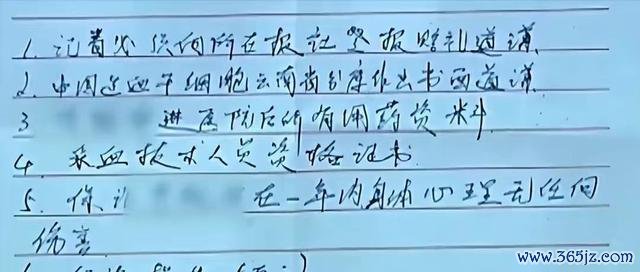 1. 记者必须向所在报社登报赔礼道谦.
2. 中国造血干细胞云南省分库作出书面道谦.
3 进医院后所有用药资料
4. 采血技术人员资格证书.
5. 保 在一年内身体心理无任何
伤害
www.365jz.com